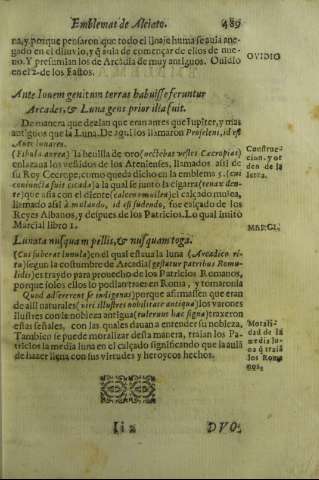 Emblemat de Alciato. 489
na, y porque pensaron que todo el linaje humano se auia ane-
gado en el diluuio, y q̃ auia de començar de ellos de nue-
uo. Y presumian los de Arcadia de muy antiguos. Ouidio
en el 2. de los Fastos.
OVIDIO
Ante Iouem genitum terras habuisse feruntur
Arcades, & Luna gens prior illa fuit.
De manera que dezian que eran antes que Iupiter, y mas
antiguos que la Luna. De aqui los llamaron Proseleni, id est
Ante lunares.
(Fibula aurea) la heuilla de oro (nectebat vestes Cecropias)
enlazaua los vestidos de los Atenienses, llamados assi de
su Roy Cecrope; como queda dicho en el emblema 5. (cui
coniuncta fuit cicada) a la qual se junto la cigarra (tenax den-
te) que asia con el diente (calceus mulleus) el calçado mulea,
llamado assi à mulando, id est suendo, fue calçado de los
Reyes Albanos, y despues de los Patricios. Lo qual imitò
Marcial libro 1.
Construc-
cion, y or
den de la
letra.
MARCI.
Lunata nusquam pellis, & nusquam toga.
(Cui suberat lunula) en el qual estaua la luna (Arcadico ri-
tu) segun la costumbre de Arcadia (gestatur patribus Romu-
lidis) es traydo para prouecho de los Patricios Romanos,
porque solos ellos lo podian traer en Roma, y tomaronla
Quod adsererent se indigenas) porque afirmassen que eran
de alli naturales (viri illustres nobilitate antiqua) los varones
illustres con la nobleza antigua (tulerunt hac signa) traxeron
estas señales, con las quales dauan a entender su nobleza,
Tambien se puede moralizar desta manera, traian los Pa-
tricios la media luna en el calçado significando que la auiã
de hazer llena con sus virtudes y heroycos hechos.
Morali-
dad de la
media lu-
na q̃ traiã
los Roma
nos.
Ii 2 DVO.